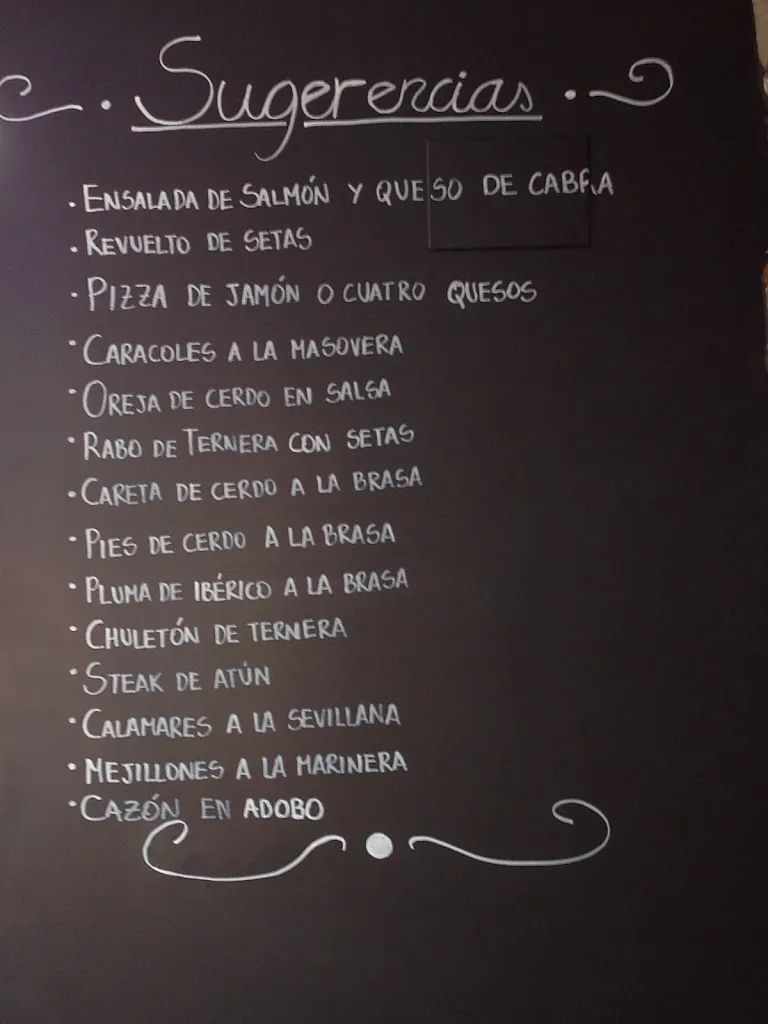 Sugerencias
· ENSALADA DE SALMÓN Y QUESO DE CABRA
· REVUELTO DE SETAS
· PIZZA DE JAMÓN O CUATRO QUESOS
· CARACOLES A LA MASOVERA
· OREJA DE CERDO EN SALSA
· RABO DE TERNERA CON SETAS
· CARETA DE CERDO A LA BRASA
· PIES DE CERDO A LA BRASA
· PLUMA DE IBÉRICO A LA BRASA
· CHULETÓN DE TERNERA
· STEAK DE ATÚN
· CALAMARES A LA SEVILLANA
· MEJILLONES A LA MARINERA
· CAZÓN EN ADOBO